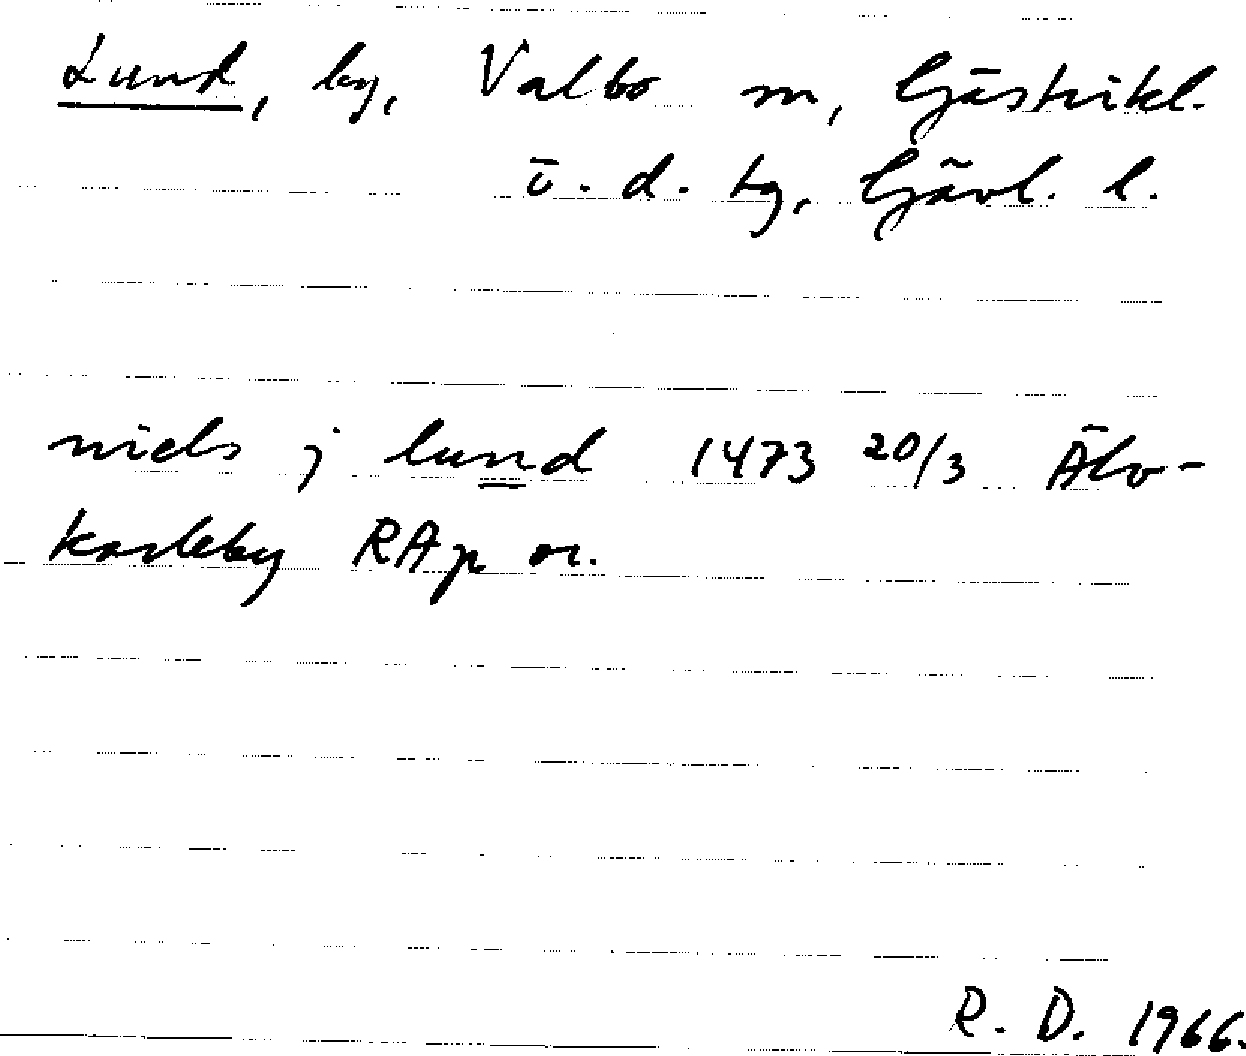 Lund, by, Valbo sn, Gästrikl.
ö. d. tg, Gävl. l.
niels j lund 1473 20/3 Älv-
karleby RAp or.
R. D. 1966.